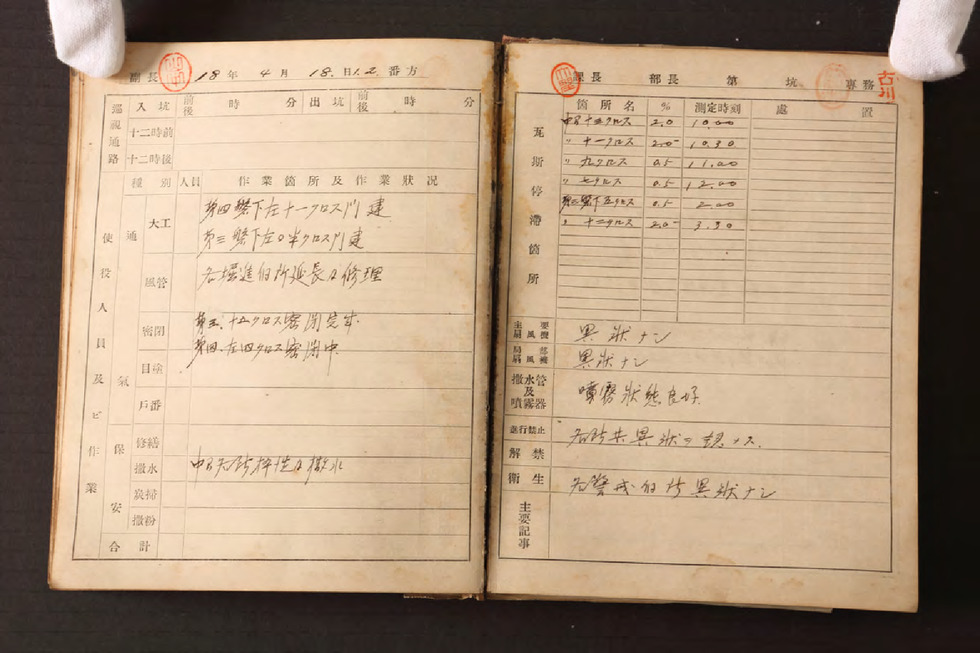 副長 18年 4月 18.日1.2.番方
巡視通路
入坑 前後 時 分 出坑 前後 時 分
十二時前
十二時後
使役人員及ビ作業
種別 人員 作業箇所及作業狀况
通氣
大工
第四盤下左十一クロス門建
第三盤下左0半クロス門建
風管
各堀進個所延長及修理
密閉
第三、十二クロス密閉完了.
第四.左四クロス密閉中.
目塗
戶番
保安
修繕
撒水
炭掃
撒粉
合計
課長 部長 第 坑 專務
古川
瓦斯停滯箇所
箇所名 % 測定時刻 處置
2.0 10.00
〃 十一クロス 2.0 10.30
〃 九クロス 0.5 11.00
〃 七クロス 0.5 12.00
第二盤下五クロス 0.5 2.00
〃 十二クロス 2.0 3.30
主要扇風機 異狀ナシ
局部扇風機 異狀ナシ
撒水管及噴霧器 噴霧狀態良好
進行禁止 各所共異狀ヲ認メス.
解禁
衛生 各警戒個所異狀ナシ
主要記事